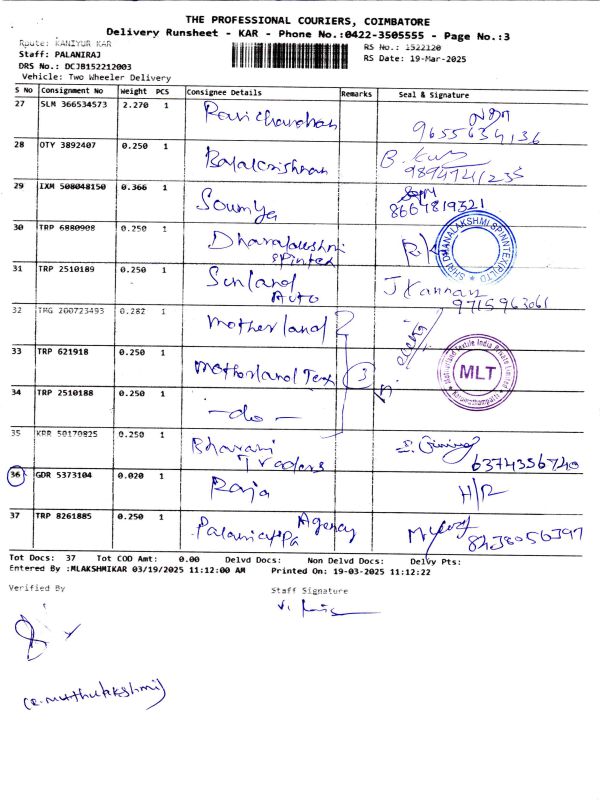 THE PROFESSIONAL COURIERS, COIMBATORE
Delivery Runsheet - KAR - Phone No.:0422-3505555 - Page No.:3
Route: KANIYUR KAR
RS No.: 1522120
Staff: PALANIRAJ
RS Date: 19-Mar-2025
DRS No.: DCJB152212003
Vehicle: Two Wheeler Delivery
S No Consignment No Weight PCS Consignee Details Remarks Seal & Signature
27 SLM 366534573 2.270 1 Ravichandran
9655634136
28 OTY 3892407 0.250 1 Balakrishnan
9894741235
29 IXM 508048150 0.366 1 Soumya
8667819321
30 TRP 6880908 0.250 1 Dhanalakshmi
Spintex
SHRI DHANALAKSHMI SPINNTEX (P) LTD
31 TRP 2510189 0.250 1 Sunland
Auto
J Kannan
9715963061
32 TMG 200723493 0.282 1 Motherland
33 TRP 621918 0.250 1 Motherland Tex
3
Motherland Textile India Private Limited
MLT
34 TRP 2510188 0.250 1 - do -
35 KRR 50170825 0.250 1 Bharani
Traders
6374356740
36 GDR 5373104 0.020 1 Raja H/R
37 TRP 8261885 0.250 1 Palaniappa Agency
8438056397
Tot Docs: 37 Tot COD Amt: 0.00 Delvd Docs: Non Delvd Docs: Delvy Pts:
Entered By :MLAKSHMIKAR 03/19/2025 11:12:00 AM Printed On: 19-03-2025 11:12:22
Verified By
Staff Signature
(R. Muthulakshmi)